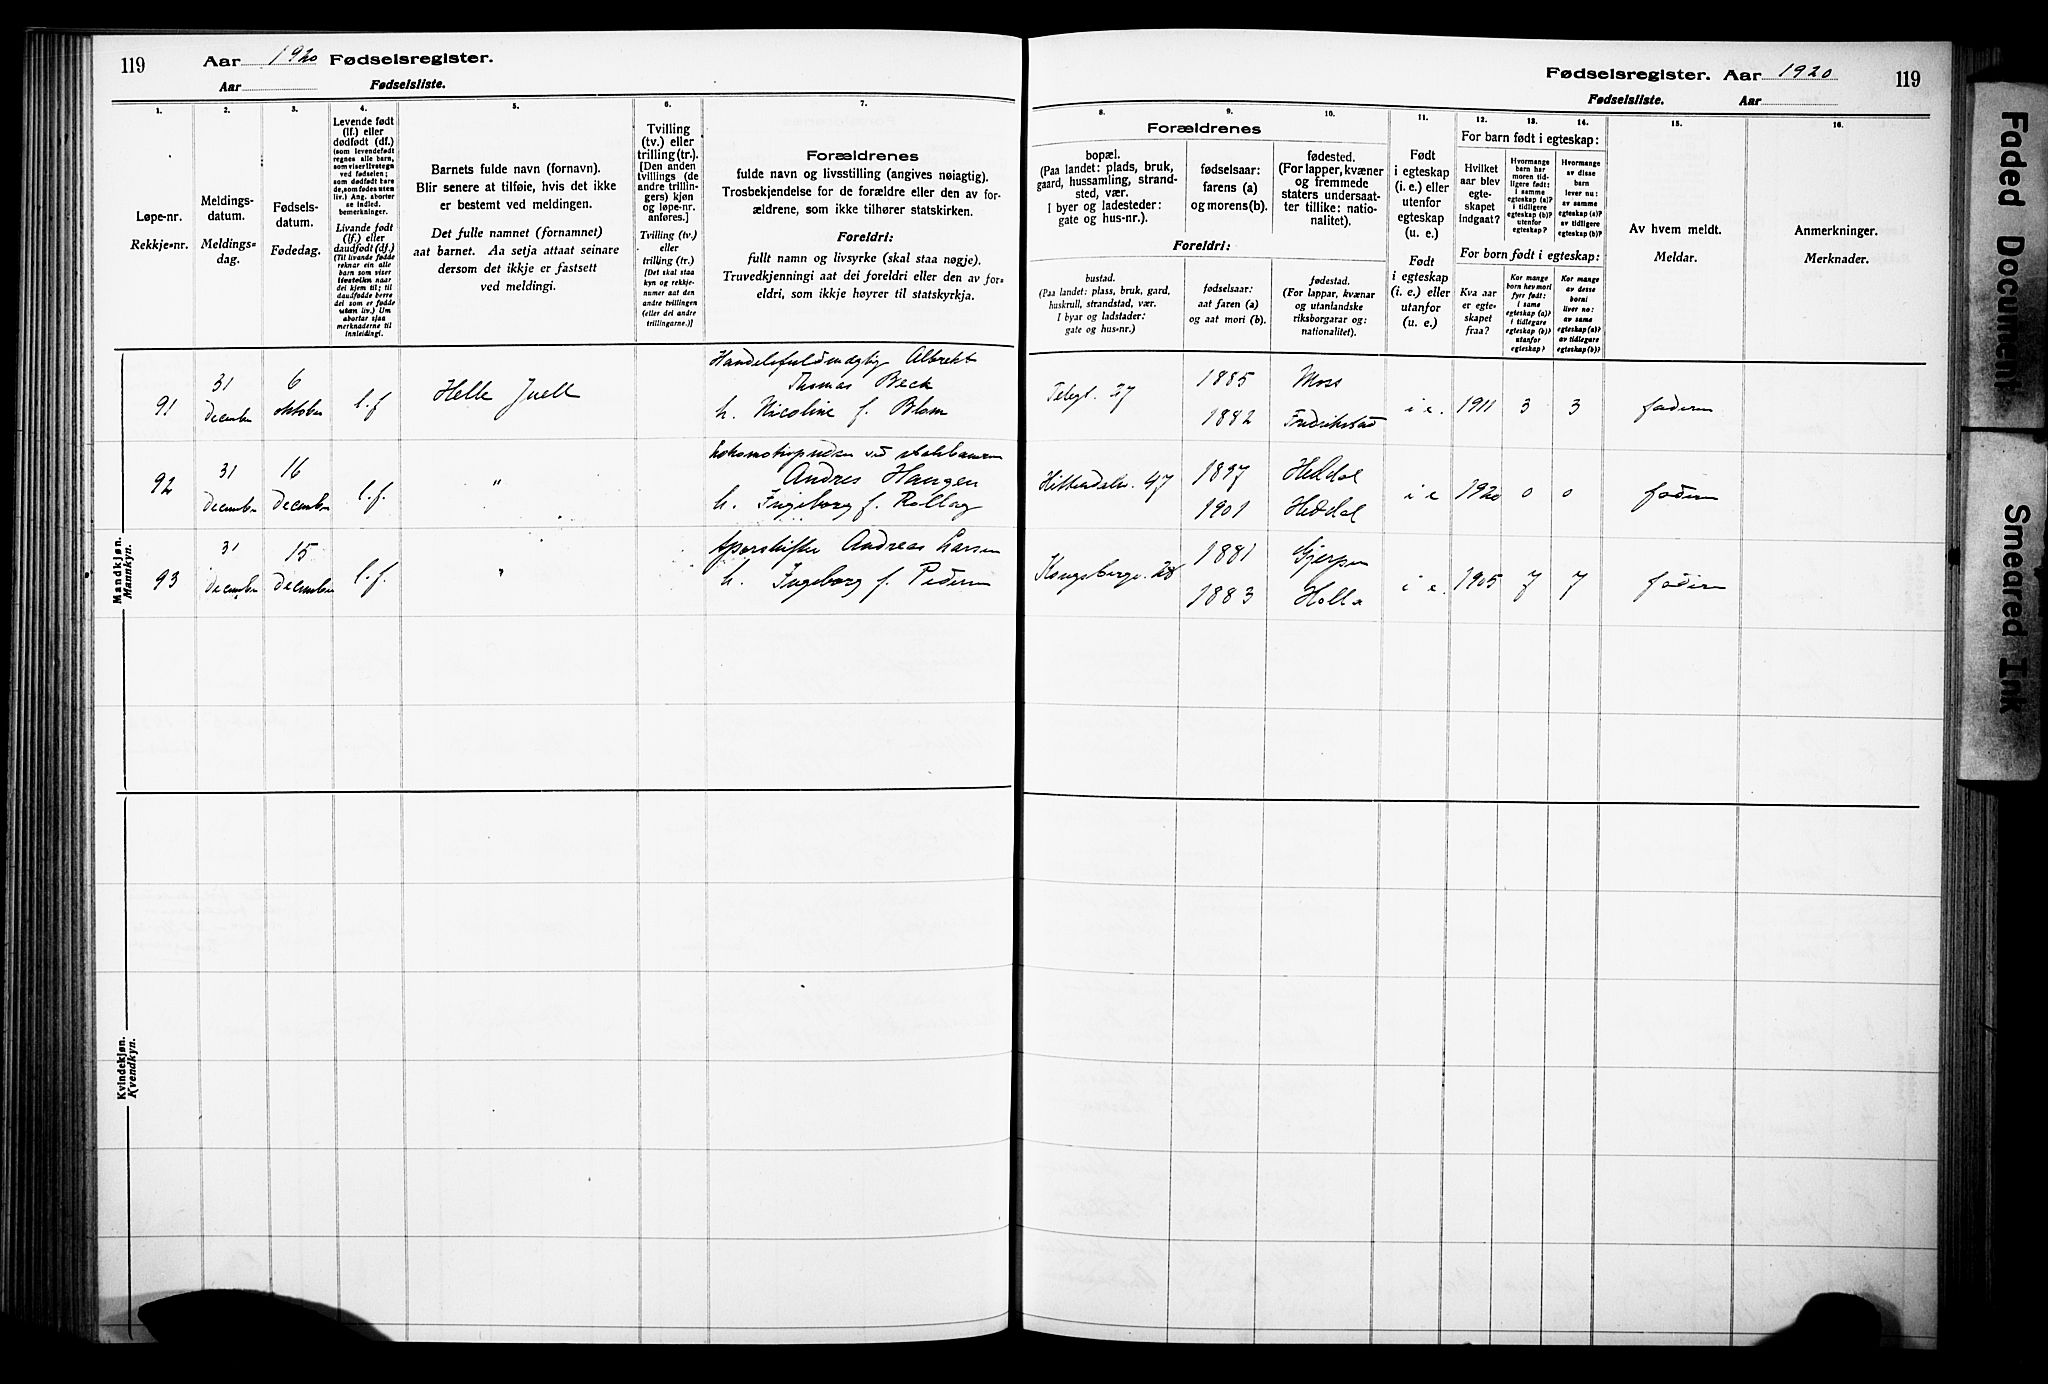 119
Aar 1920 Fødselsregister.
Aar Fødselsliste.
1. 2. 3. 4. 5. 6. 7.
Løpe-nr.
Rekkje-nr.
Meldings-
datum.
Meldings-
dag.
Fødsels-
datum.
Fødedag.
Levende født
(lf.) eller
dødfødt (df.)
(som levendefødt
regnes alle barn,
som viser livstegn
ved fødselen;
som dødfødt bare
de, som fødes uten
liv.) Ang. aborter
se indled.
bemerkninger.
Livande født
(lf.) eller
daudfødt (df.)
(Til livande fødde
reknar ein alle
barn som viser
livsteikn naar
dei kjem til; til
daudfødde berre
dei som er fødde
utan liv.) Um
abortar sjaa
merknaderne til
innleidingi.
Barnets fulde navn (fornavn).
Blir senere at tilføie, hvis det ikke
er bestemt ved meldingen.
Det fulle namnet (fornamnet)
aat barnet. Aa setja attaat seinare
dersom det ikkje er fastsett
ved meldingi.
Tvilling
(tv.) eller
trilling (tr.).
[Den anden
tvillings (de
andre trillin-
gers) kjøn
og løpe-nr.
anføres.]
Tvilling (tv.)
eller
trilling (tr.)
[Det skal staa
kyn og rekkje-
numer aat den
andre tvillingen
(eller dei andre
trillingarne.)]
Forældrenes
fulde navn og livsstilling (angives nøiagtig).
Trosbekjendelse for de forældre eller den av for-
ældrene, som ikke tilhører statskirken.
Foreldri:
fullt namn og livsyrke (skal staa nøgje).
Truvedkjenningi aat dei foreldri eller den av for-
eldri, som ikkje høyrer til statskyrkja.
Mandkjøn.
Mannkyn.
91
31
December
6
oktober
l.f
Helle Juell
Handelsfuldmægtig Albrekt
Thomas Beck
h. Nicoline f. Blom
92
31
December
16
December
l.f.
"
Andres Haugen
h. Ingeborg f. Rollag
93
31
December
15
December
l.f.
"
Andreas Larsen
h. Ingeborg f. Pedersen
Kvindekjøn.
Kvendkyn.
Fødselsregister. Aar 1920
119
Fødselsliste. Aar
8. 9. 10. 11. 12. 13. 14. 15. 16.
Forældrenes
bopæl.
(Paa landet: plads, bruk,
gaard, hussamling, strand-
sted, vær.
I byer og ladesteder:
gate og hus-nr.)
fødselsaar:
farens (a)
og morens (b).
fødested.
(For lapper, kvæner
og fremmede
staters undersaat-
ter tillike: natio-
nalitet).
Foreldri:
bustad.
(Paa landet: plass, bruk, gard,
huskrull, strandstad, vær.
I byar og ladstader:
gate og hus-nr.)
fødselsaar:
aat faren (a)
og aat mori (b).
fødestad.
(For lappar, kvænar
og utanlandske
riksborgarar og:
nationalitet).
Født
i egteskap
(i. e.) eller
utenfor
egteskap
(u. e.)
Født
i egteskap
(i. e.) eller
utanfor
(u. e.)
For barn født i egteskap:
Hvilket
aar blev
egte-
skapet
indgaat?
Hvormange
barn har
moren tid-
ligere født:
i samme
egteskap (a)?
i tidligere
egteskap (b)?
utenfor
egteskap?
Hvormange
av disse
barn
lever nu:
av samme
egteskap (a)?
av tidligere
egteskap (b)?
For born født i egteskap:
Kva aar
er egte-
skapet
fraa?
Kor mange
born hev mori
fyrr født:
i same
egteskap (a)?
i tidlegare
egteskap (b)?
utanfor
egteskap?
Kor mange
av desse
borni
liver no:
av same
egteskap (a)?
av tidlegare
egteskap (b)?
Av hvem meldt.
Meldar.
Anmerkninger.
Merknader.
Telegt. 27
1885
1882
Moss
Fredrikstad
i e. 1911 3 3 faderen
Hitterdalsv. 47
1897
1901
Heddal
Heddal
i e 1920 0 0 faderen
Kongsbergv. 28
1881
1883
Gjerpen
Holla
i e. 1905 7 7 faderen
Faded Document
Smeared Ink